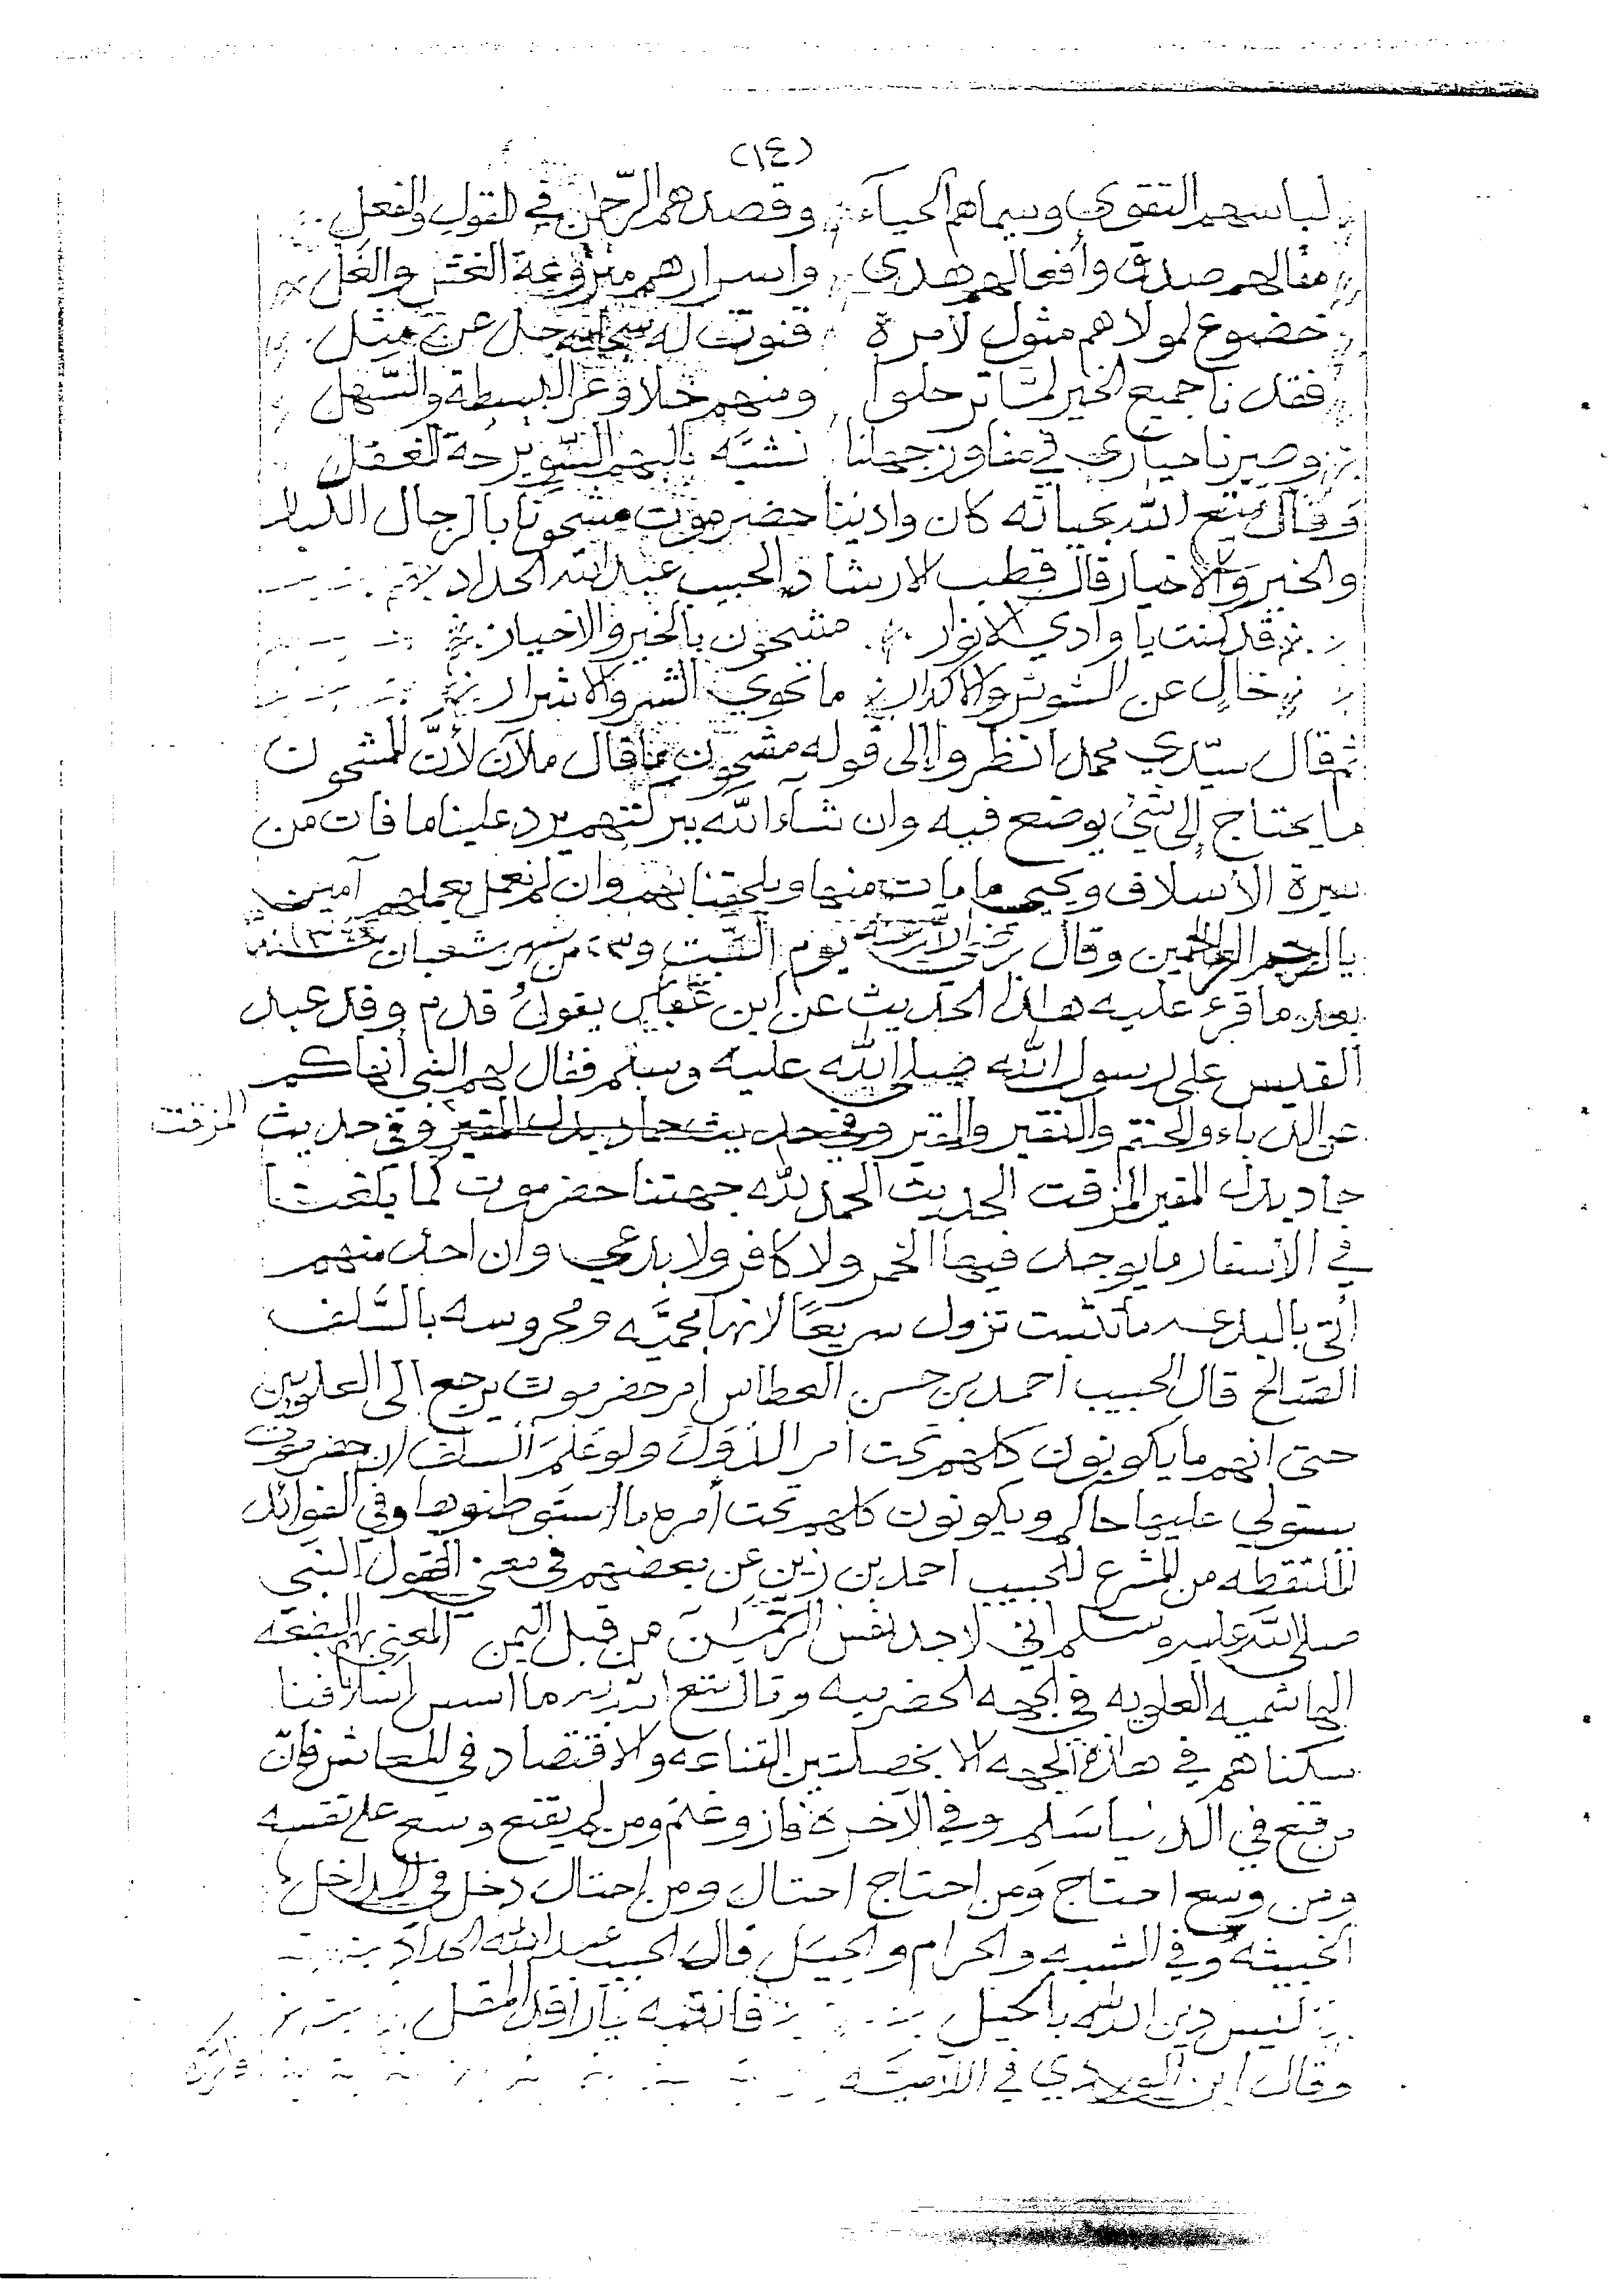 (١٤)
لباسهم التقوى وسيماهم الحيآء وقصدهم الرّحمن في القول والفعل
مقالهم صدق وأفعالهم هدى واسرارهم منزوعة الغش والغل
خضوع لمولاهم مثول لأمره قنوت له سبحانه جل عن مثل
فقدنا جميع الخير لمّا ترحلوا ومنهم خلا وعر البسيطة والسّهل
وصيرنا حيارى في مفاوز جهلنا نشبّه بالبهم
وقال متع الله بحياته كان وادينا حضرموت مشحونا بالرجال الكبار
والخير والاخيار قال قطب الارشاد الحبيب عبدالله الحداد
قد كنت يا وادي الانوار مشحون بالخير والاخيار
خالٍ عن الشوش والاكدار ما تحوي الشر والاشرار
ثم قال سيّدي محمد انظروا إلى قوله مشحون ما قال ملآن لأنّ المشحون
ما يحتاج إلى شئ يوضع فيه وان شآء الله ببركتهم يرد علينا ما فات من
سيرة الأسلاف ويحيي ما مات منها ويلحقنا بهم وان لم نعمل بعملهم آمين
يا ارحم الراحمين وقال رضي الله عنه يوم السّبت و من شهر شعبان سنة
بعد ما قرء عليه هاذا الحديث عن ابن عباس يقول قدم وفد عبد
القيس على رسول الله صلى الله عليه وسلم فقال لهم النبي أنهاكم
عن الدباء والحنتم والنقير والمقير وفي حديث حماد بدل المقير وفي حديث المزفت
حماد بدل المقير المزفت الحديث الحمد لله جهتنا حضرموت كما بلغت
في الأسفار ما يوجد فيها الخمر ولا كافر ولا بدعي وان احد منهم
أتى بالبدعه ماتثبت تزول سريعًا لأنها محميّه ومحروسه بالسّلف
الصّالح قال الحبيب احمد بن حسن العطاس أمر حضرموت يرجع الى العلويين
حتى انهم ما يكونون كلهم تحت أمر الدّوَل ولو عَلِمَ السلف ان حضرموت
يستولي عليها حاكم ويكونون كلهم تحت أمره ما استوطنوها وفي الفوائد
الملتقطه من المشرع للحبيب احمد بن زين عن بعضهم في معنى القول النبي
صلى الله عليه وسلم اني لاجد نفس الرّحمن من قبل اليمن المعنى بهم البضعه
الهاشميه العلويه في الجهه الحضرميه وقال متع الله به ما اسس اسلافنا
سكناهم في هاذه الجهه الا بخصلتين القناعه والاقتصاد في المعاش فإنّ
من قنع في الدنيا سَلِم وفي الآخرة فاز وغنم ومن لم يقنع وسع على نفسه
ومن وسع احتاج وَمن احتاج احتال ومن إحتال دخل في المداخل
الخبيثه وفي الشبه والحرام والحِيَل قال الحبيب عبدالله الحداد
ليس دين الله بالحيل فانتبه يا راقد المقل
وقال ابن الوردي في اللاميّه